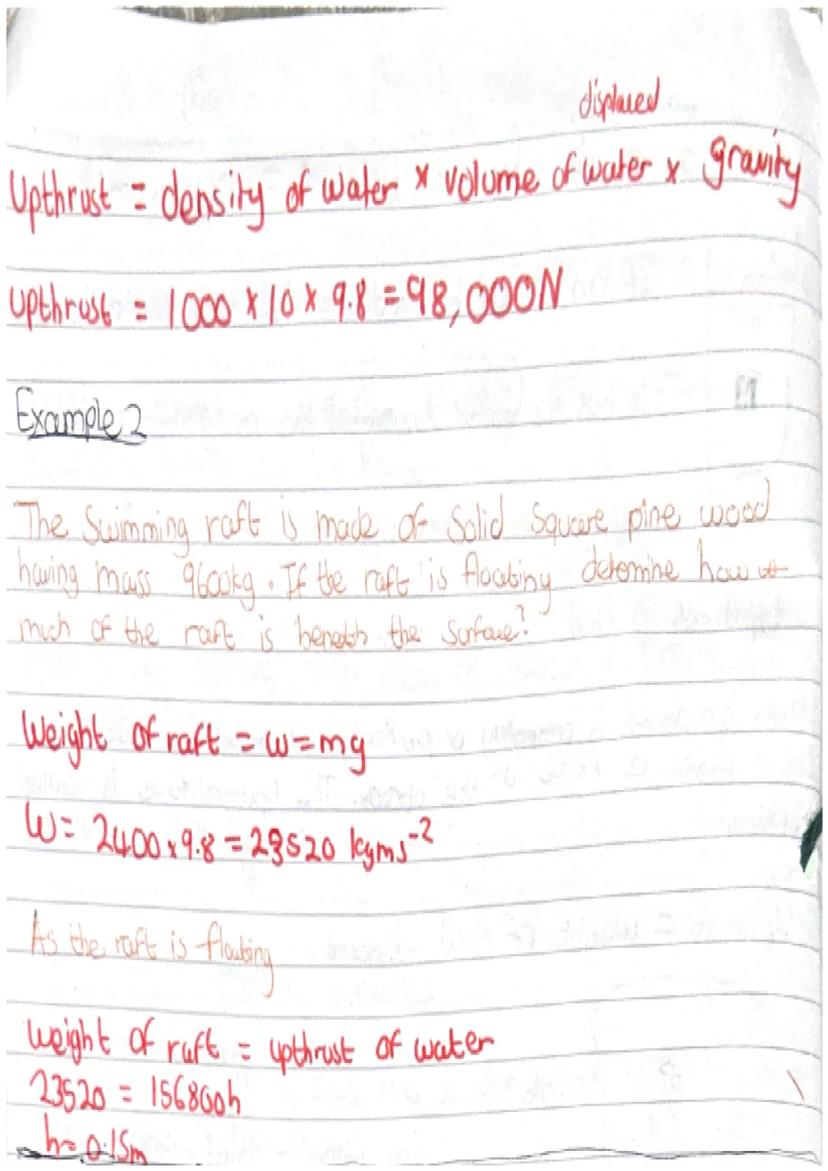 displaced
Upthrust = density of water x volume of water x gravity
Upthrust = 1000 x 10 x 9.8 = 98,000N
Example 2
The Swimming raft is made of Solid Square pine wood
having mass 9600kg. If the raft is floating determine how
much of the raft is beneath the surface?
Weight of raft = w = mg
W = 2400 x 9.8 = 23520 kgms⁻²
As the raft is floating
weight of raft = upthrust of water
23520 = 156800h
h = 0.15m